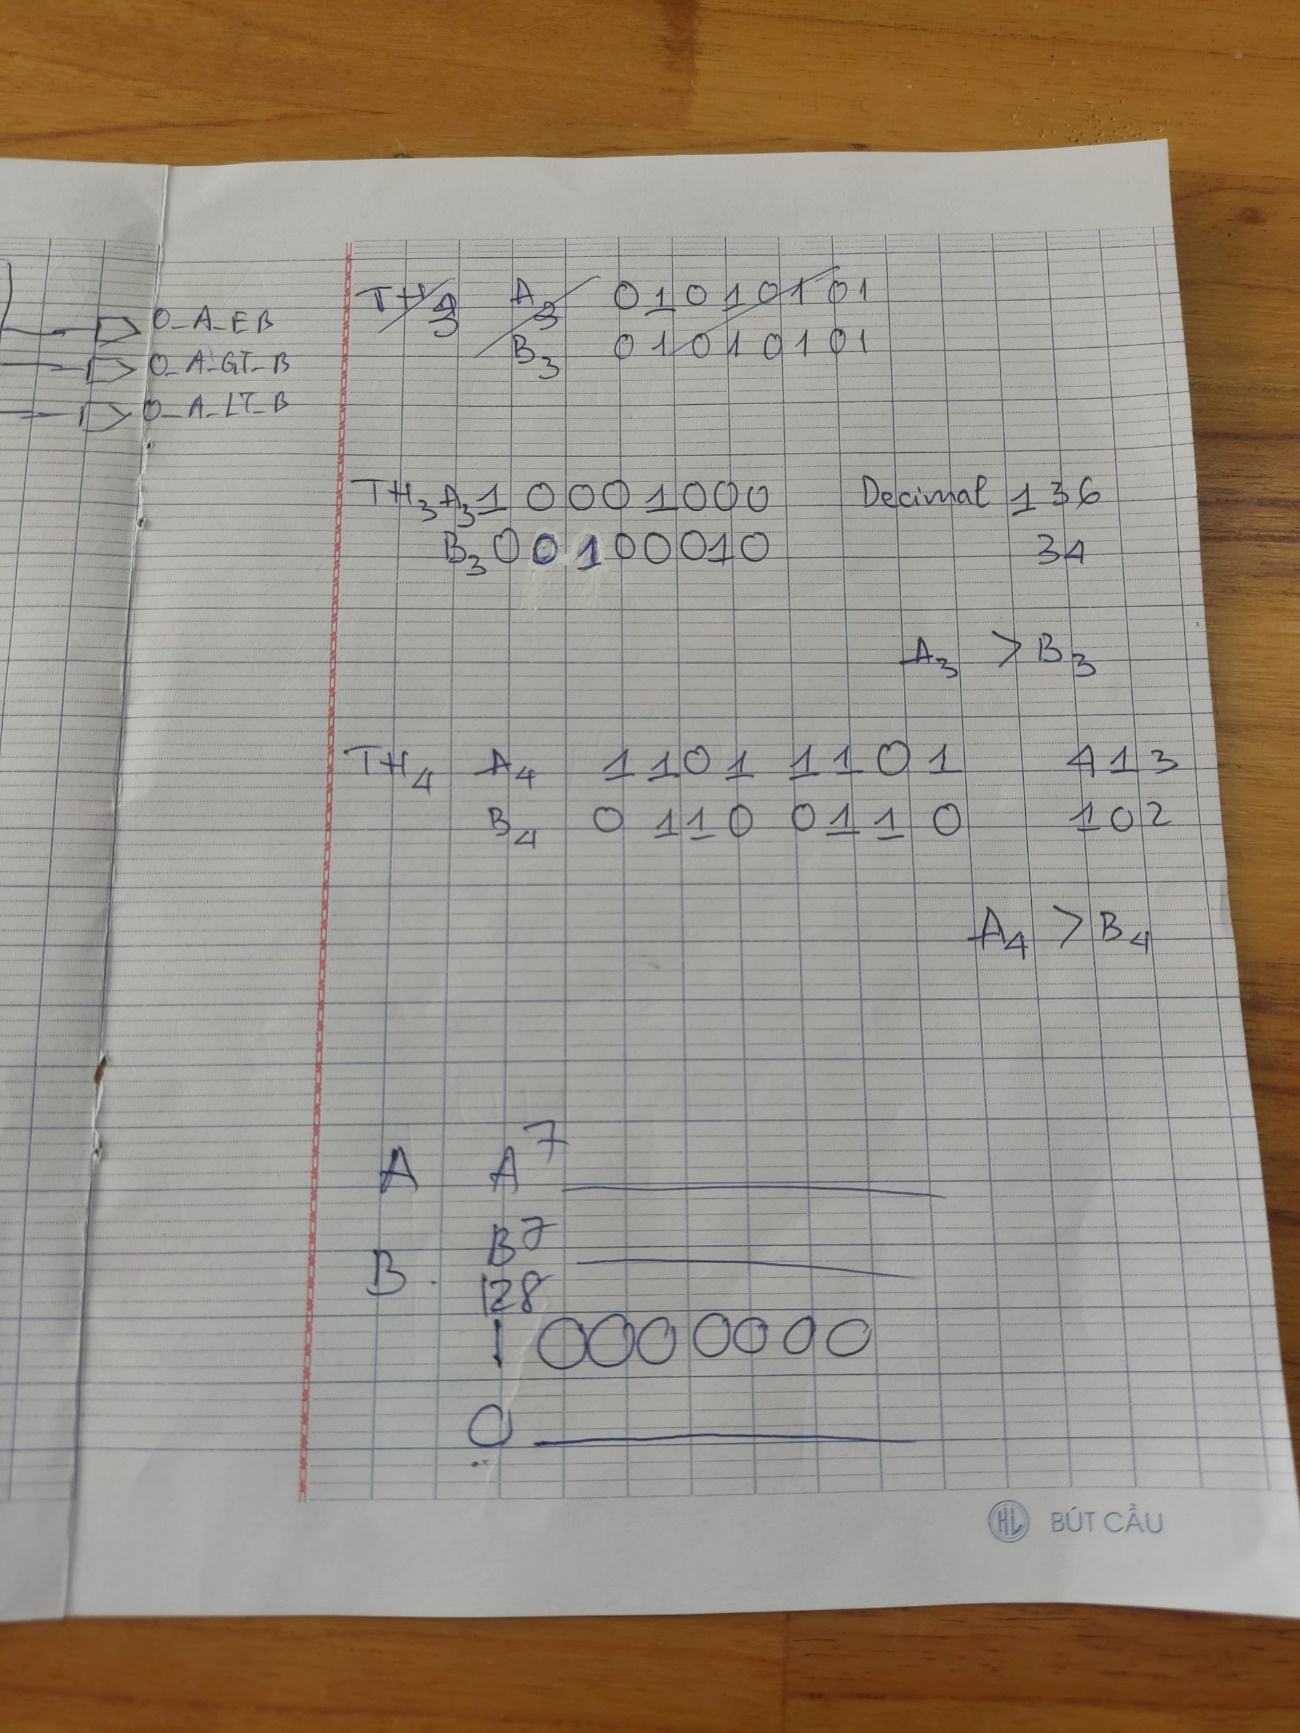 O_A_EB
O_A_GT_B
O_A_LT_B
TH3 A3 01010101
B3 01010101
TH3 A3 1 0001000 Decimal 136
B3 00100010 34
A3 > B3
TH4 A4 1101 1101 413
B4 0110 0110 102
A4 > B4
A A7
B7
B.
128
1 0000000
0
HL BÚT CẦU